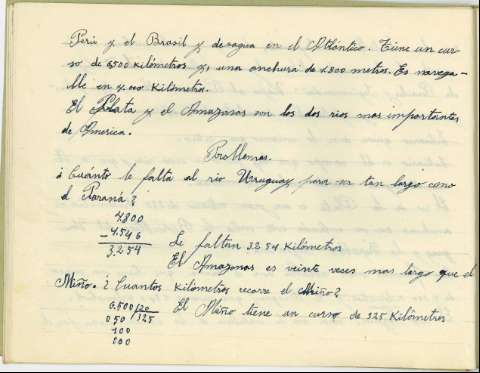 Perú y el Brasil y desagua en el Atlántico. Tiene un cur-
so de 6500 Kilómetros y, una anchura de 4800 metros. Es navega-
ble en 4.000 Kilómetros.
El Plata y el Amazonas son los dos rios mas importantes
de America.
Problemas.
¿Cuánto le falta al río Uruguay para ser tan largo como
el Paraná?
4.800
- 1.546
3.254
Le faltan 3.254 Kilómetros
El Amazonas es veinte veces mas largo que el
Miño. ¿Cuantos Kilómetros recorre el Miño?
6.500 /20
050 325
100
000
El Miño tiene un curso de 325 Kilómetros